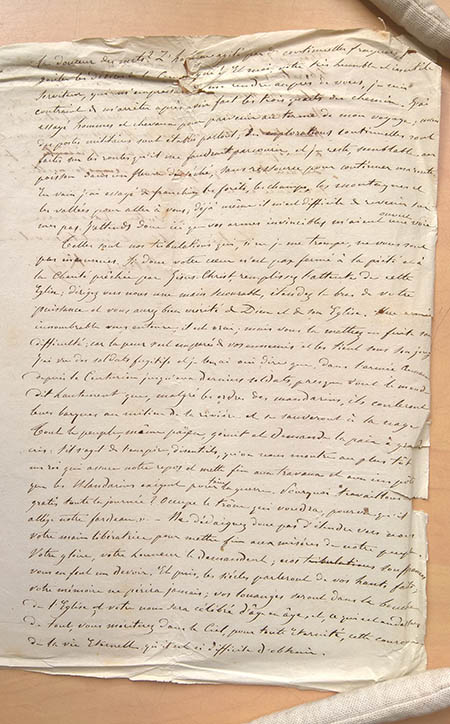 la douceur des mets? L' par de continuelles
toutes les de la Et moi, votre très humble et inutile
serviteur, qui m'empressais de me rendre auprès de vous, je suis
contraint de m'arrêter après avoir fait les trois quarts du chemin. J'ai
essayé hommes et chevaux pour parvenir au terme de mon voyage, mais
des postes militaires sont établis partout. Des explorations continuelles sont
faites sur les routes qu'il me faudrait parcourir, et je reste, semblable au
poisson dans un fleuve desséché, sans ressource pour continuer ma route.
En vain j'ai essayé de franchir les forêts, les champs, les montagnes et
les vallées pour aller à vous, déjà même il m'est difficile de revenir sur
mes pas. J'attends donc ici que vos armes invincibles m'aient ouvert une voie.
Telles sont nos tribulations qui, si je ne me trompe, ne vous sont
pas inconnues. Si donc votre cœur n'est pas fermé à la pitié et à
la Charité prêchée par Jésus-Christ remplissez l'attente de cette
Eglise; dirigez vers nous une main secourable, étendez le bras de votre
puissance et vous aurez bien mérité de Dieu et de son Eglise. Une armée
innombrable vous entoure, il est vrai, mais vous la mettrez en fuite sans
difficulté; car la peur s'est emparée de vos ennemis et les tient sous son joug.
J'ai vu des soldats fugitifs et je leur ai ouï dire que, dans l'armée
depuis le Centurion jusqu'aux derniers soldats, presque tout le monde
dit hautement que, malgré les ordres des mandarins, ils couleront
leurs barques au milieu de la rivière et se sauveront à la nage.
Tout le peuple, même païen, gémit et demande la paix à grands
cris: il s'agit de temps, disent-ils, qu'on nous montre au plus tôt
un roi qui assure notre repos et mette fin aux travaux et aux impôts
que les Mandarins exigent pour la guerre. Pourquoi travaillons-nous
gratis toute la journée? Occupe le trône qui voudra, pourvu qu'il
allège notre fardeau." — Ne dédaignez donc pas d'étendre vers nous
votre main libératrice pour mettre fin aux misères de notre peuple.
Votre gloire, votre honneur le demandent; nos tribulations
vous en font un devoir. Et puis, les siècles parleront de vos hauts faits,
votre mémoire ne périra jamais; vos louanges seront dans la bouche
de l'Eglise et votre nom sera célébré d'âge en âge, et, ce qui est au-dessus
de tout vous mériterez dans le Ciel, pour toute éternité, cette couronne
de la vie éternelle qu'il est si difficile d'obtenir.